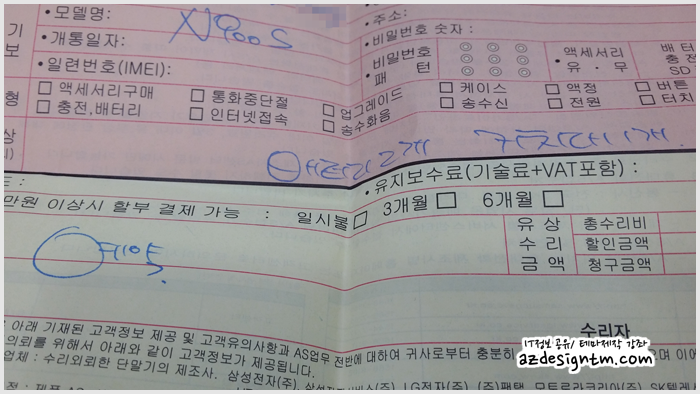 •모델명: N900S
•주소:
기
•개통일자:
•비밀번호 숫자:
보
•일련번호(IMEI):
•비밀번호
패 턴
액세서리
유 · 무
배 터
충 전
SD
형
□ 액세서리구매 □ 통화중단절 □ 업그레이드 □ 케이스 □ 액정 □ 버튼
□ 충전,배터리 □ 인터넷접속 □ 송수화음 □ 송수신 □ 전원 □ 터치
상
•유지보수료(기술료+VAT포함) :
만원 이상시 할부 결제 가능 : 일시불 □ 3개월 □ 6개월 □
유 상 총수리비
수 리 할인금액
금 액 청구금액
수리자
아래 기재된 고객정보 제공 및 고객유의사항과 AS업무 전반에 대하여 귀사로부터 충분히
의뢰를 위해서 아래와 같이 고객정보가 제공됩니다.
업체 : 수리외뢰한 단말기의 제조사. 삼성전자(주),
LG전자(주), (주)팬택, 모토로라코리아(주), SK텔레
IT정보 공유/ 테마제작 강좌
azdesigntm.com